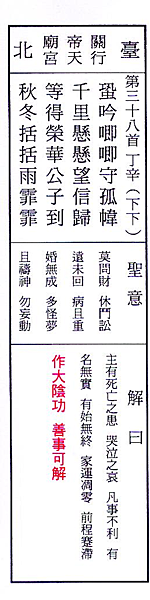 臺北
行天宮
關帝廟
第三十八首 丁辛(下下)
蛩吟唧唧守孤幃
千里懸懸望信歸
等得榮華公子到
秋冬括括雨霏霏
聖意
莫問財 休鬥訟
遠未回 病且重
婚無成 多怪夢
且禱神 勿妄動
解曰
主有死亡之患 哭泣之哀 凡事不利 有
名無實 有始無終 家運凋零 前程蹇滯
作大陰功 善事可解